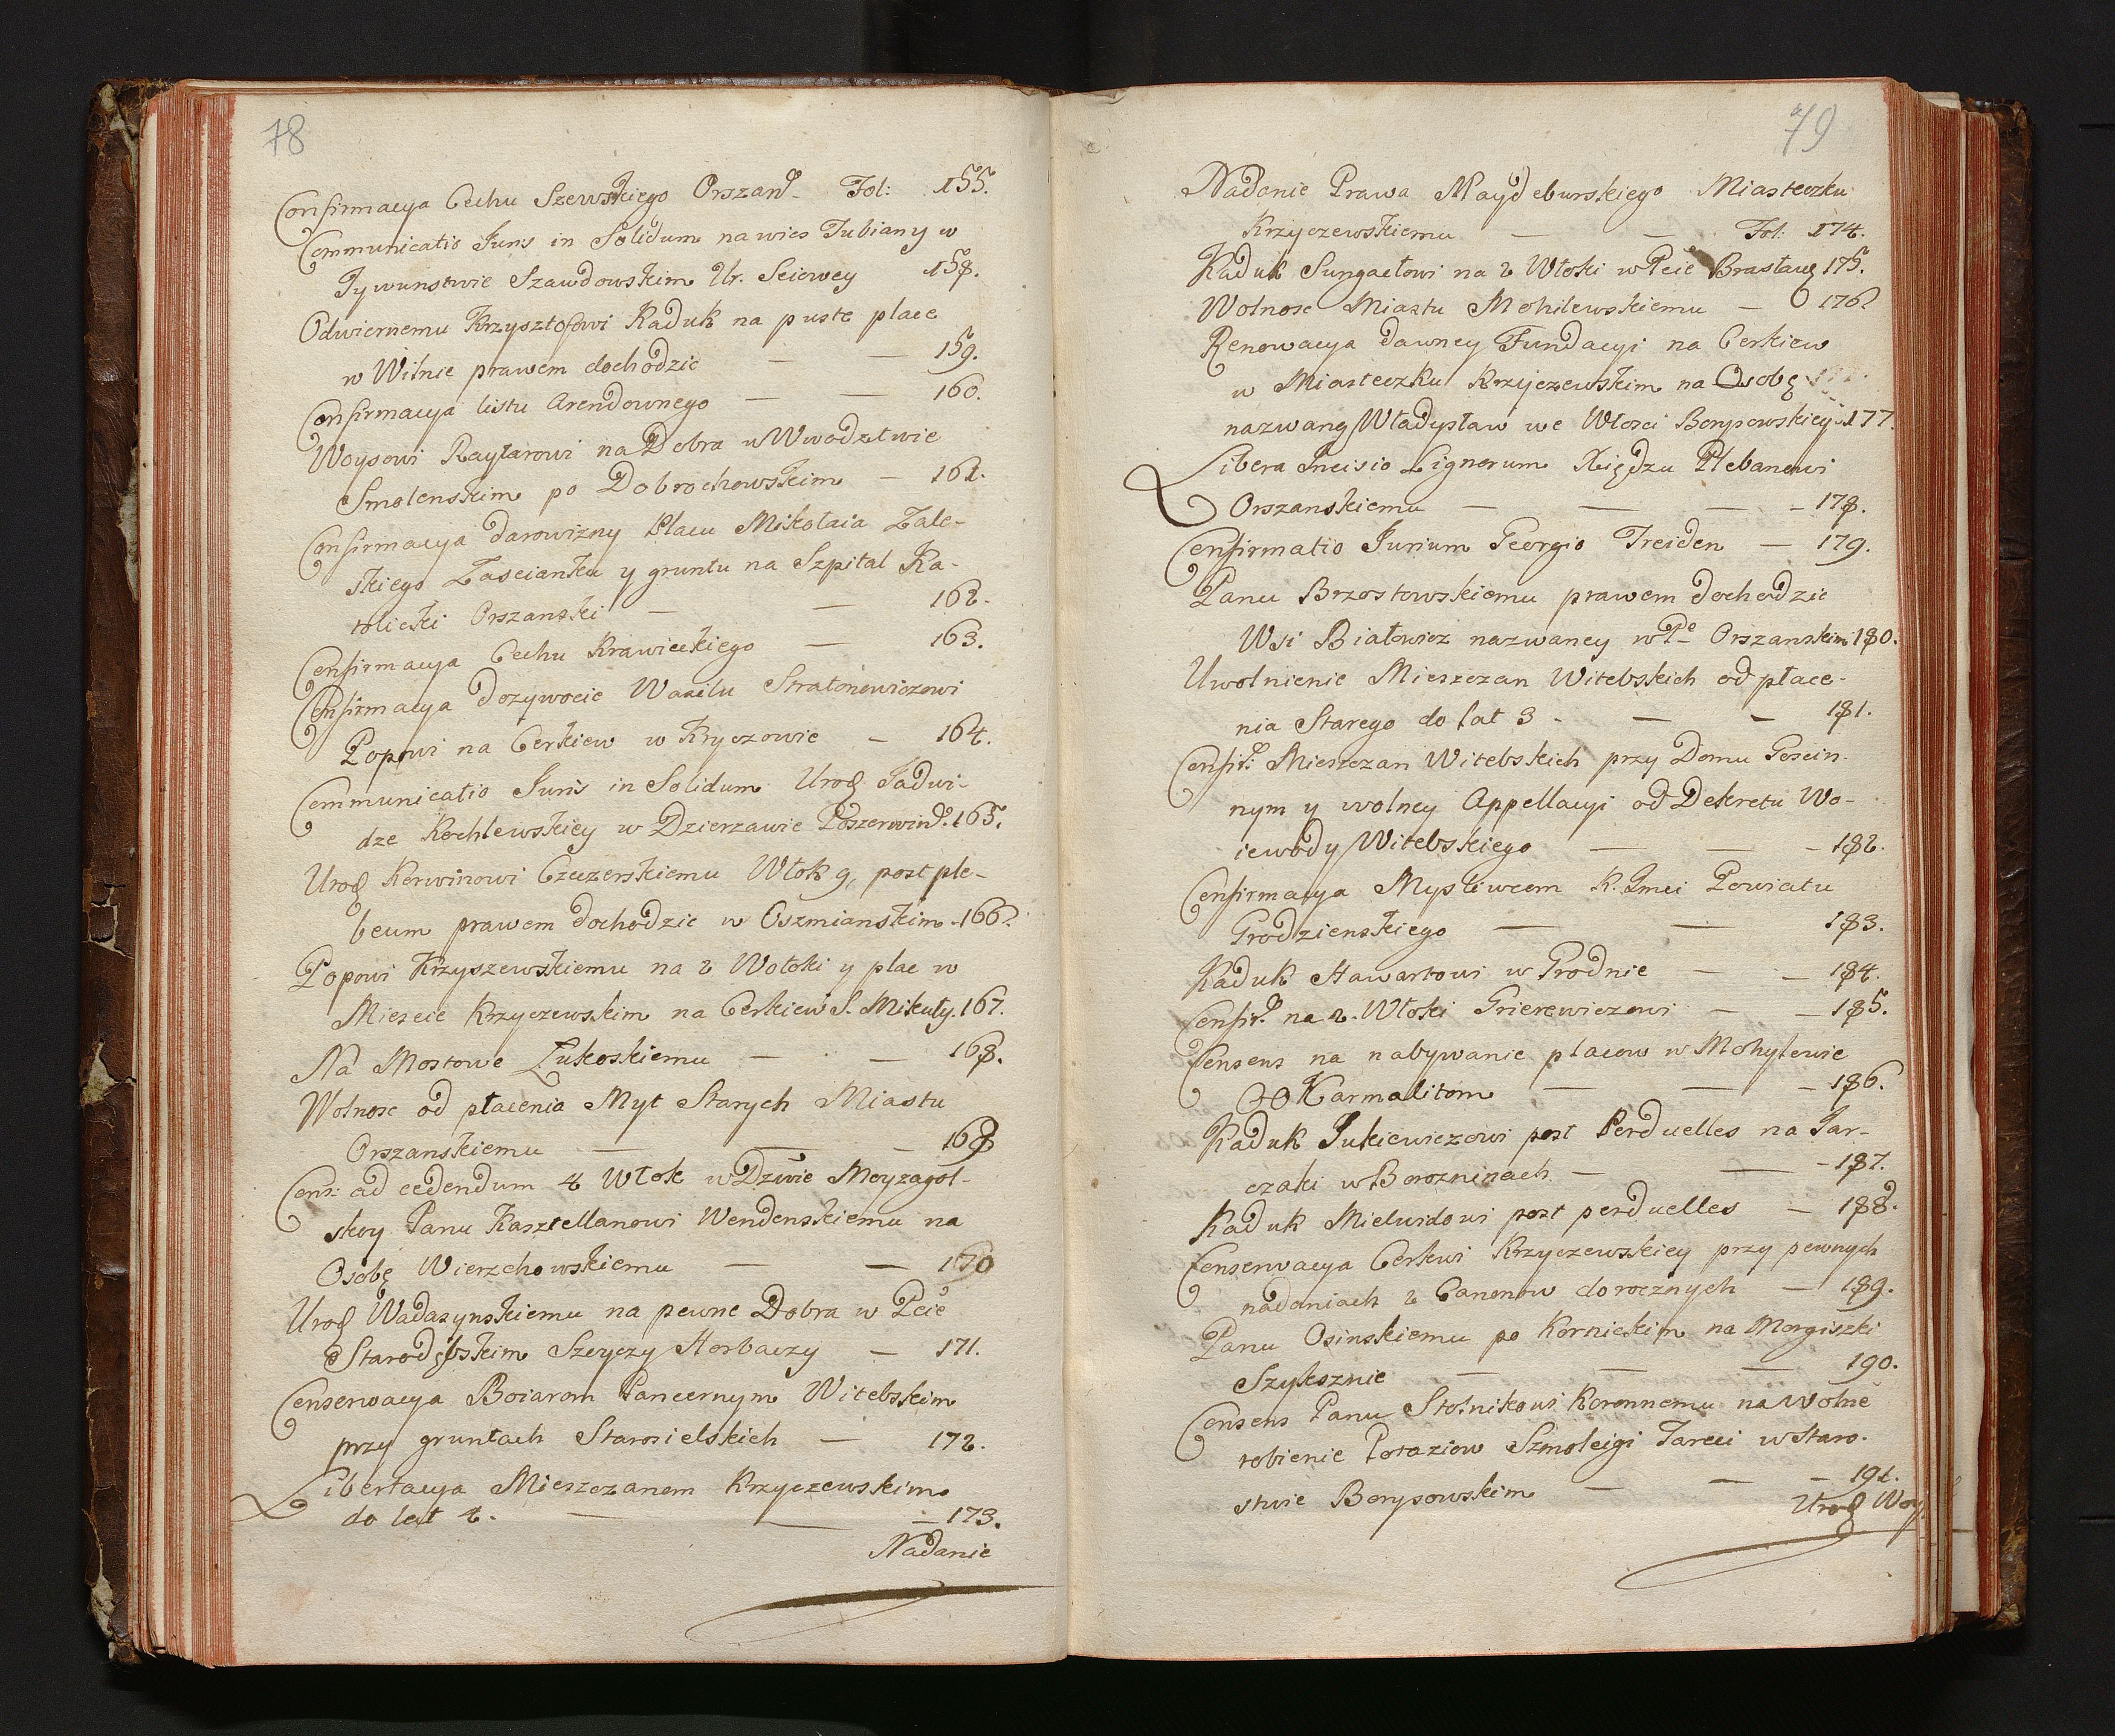 78
Confirmacya Cechu Szewskiego Orszanᵈ. Fol: 155.
Communicatio Juris in Solidum na wies Tubiany w
Tywunstwie Szawdowskim Ur. Sciowey 158.
Odwiernemu Krzysztofowi Kaduk na puste place
w Wilnie prawem dochodzic — — 159.
Confirmacya listu Arendownego — — 160.
Woysowi Raytarowi na Dobra w Wwodztwie
Smolenskim po Dobrochowskim — 161.
Confirmacya darowizny Placu Mikołaia Zale-
skiego Zascianku y gruntu na Szpital Ka-
tolicki Orszanski — — 162.
Confirmacya Cechu Krawieckiego — 163.
Confirmacya dozywocie Wasilu Stratonowiczowi
Popowi na Cerkiew w Kryczowie — 164.
Communicatio Juris in Solidum Urod Jadwi-
dze Kochlewskiey w Dzierzawie Poszerwinᵈ. 165.
Urod Kerwinowi Czeczerskiemu Włok 9, post ple-
beum prawem dochodzic w Oszmianskim. 166.
Popowi Krzyszewskiemu na 2 Wołoki y plac w
Miescie Krzyczewskim na Cerkiew S. Mikuły. 167.
Na Mostowe Łukoskiemu — — 168.
Wolnosc od płacenia Myt Starych Miastu
Orszanskiemu — — — 168
Cons: ad cedendum 4 Włok w Dzwie Meyzagol-
skoy Panu Kasztellanowi Wendenskiemu na
Osobę Wierzchowskiemu — — 170
Urod Wadaszynskiemu na pewne Dobra w Pcie
Starodubskim Szeyczy Horbaczy — 171.
Conserwacya Boiarom Pancernym Witebskim
przy gruntach Starosielskich — 172.
Libertacya Mieszczanom Krzyczewskim
do lat 4. — — — 173.
Nadanie
79
Nadanie Prawa Maydeburskiego Miasteczku
Krzyczewskiemu — — Fol: 174.
Kaduk Sungaełowi na 2 Włoki w Pcie Brasławᵈ 175.
Wolnosc Miastu Mohilewskiemu — 176.
Renowacya dawney Fundacyi na Cerkiew
w Miasteczku Krzyczewskim na Osobę
nazwaną Władysław we Włosci Borysowskiey. 177.
Libera Incisio Lignorum Xiędzu Plebanowi
Orszanskiemu — — — — 178.
Confirmatio Jurium Georgio Treiden — 179.
Panu Brzostowskiemu prawem dochodzic
Wsi Białowicz nazwaney w Pᵉ Orszanskim 180.
Uwolnienie Mieszczan Witebskich od płace-
nia Starego do lat 3 — — — 181.
Confirᵃ: Mieszczan Witebskich przy Domu Goscin-
nym y wolney Appellacyi od Dekretu Wo-
iewody Witebskiego — — — 182.
Confirmacya Mysliwcom K. Jmci Powiatu
Grodzienskiego — — 183.
Kaduk Hawartowi w Grodnie — — 184.
Confirᵃ. na 2. Włoki Grierewiczowi — — 185.
Consens na nabywanie placow w Mohylewie
OO Karmalitom — — — 186.
Kaduk Jukiewiczowi post Perduelles na Jar-
czaki w Borozninach — — — 187.
Kaduk Mielwidowi post perduelles — 188.
Conserwacya Cerkwi Krzyczewskiey przy pewnych
nadaniach 2 Canonow dorocznych — 189.
Panu Osinskiemu po Kornickim na Morgiszki
Szyksznie — — — 190.
Consens Panu Stolnikowi Koronnemu na wolne
robienie Potaziow Szmolcigi Tarcci w Staro-
stwie Borysowskim — — — 191.
Urod Woy